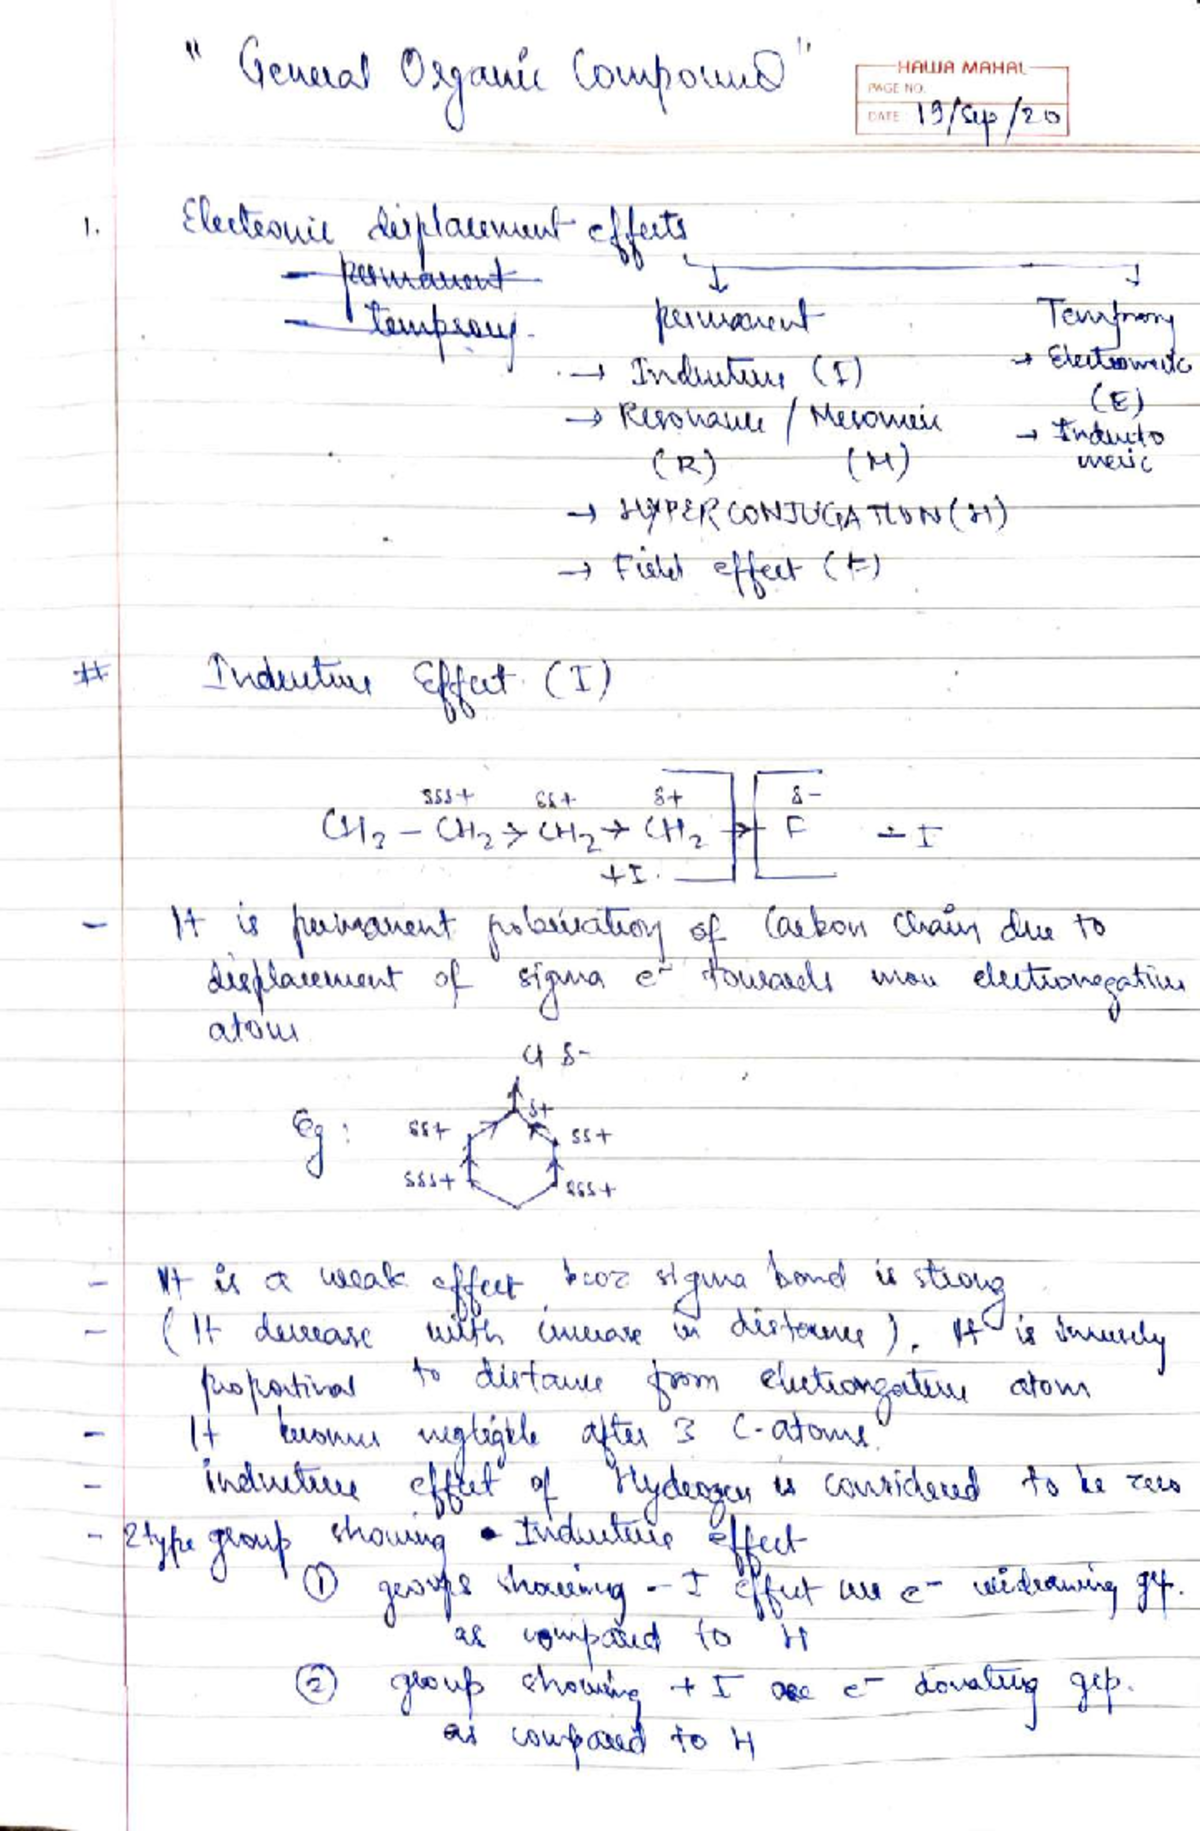 " General Organic Compound "
HAWA MAHAL
PAGE NO.
DATE 19/Sep/20
1. Electronic displacement effects
- permanent
- temprory.
permanent
Temprory
→ Inductive (I)
→ Electromeric (E)
→ Resonance / Mesomeric
(R) (M)
→ Inducto meric
→ HYPERCONJUGATION (H)
→ Field effect (F)
# Inductive Effect (I)
δδδ+ δδ+ δ+ δ-
CH3 - CH2 → CH2 → CH2 → F - I
+I.
- It is permanent polarisation of Carbon chain due to
displacement of sigma e- towards more electronegative
atom
Cl δ-
Eg: δδ+ δ+ δδ+
δδδ+ δδδ+
- It is a weak effect bcoz sigma bond is strong
- (It decrease with increase in distance). It is inversely
proportional to distance from electronegative atom
- It becomes negligible after 3 C-atoms.
- inductive effect of Hydrogen is considered to be zero
- 2 type group showing • Inductive effect
① groups showing - I effect are e- widrawing gp.
as compared to H
② group showing + I are e- donating grp.
as compared to H